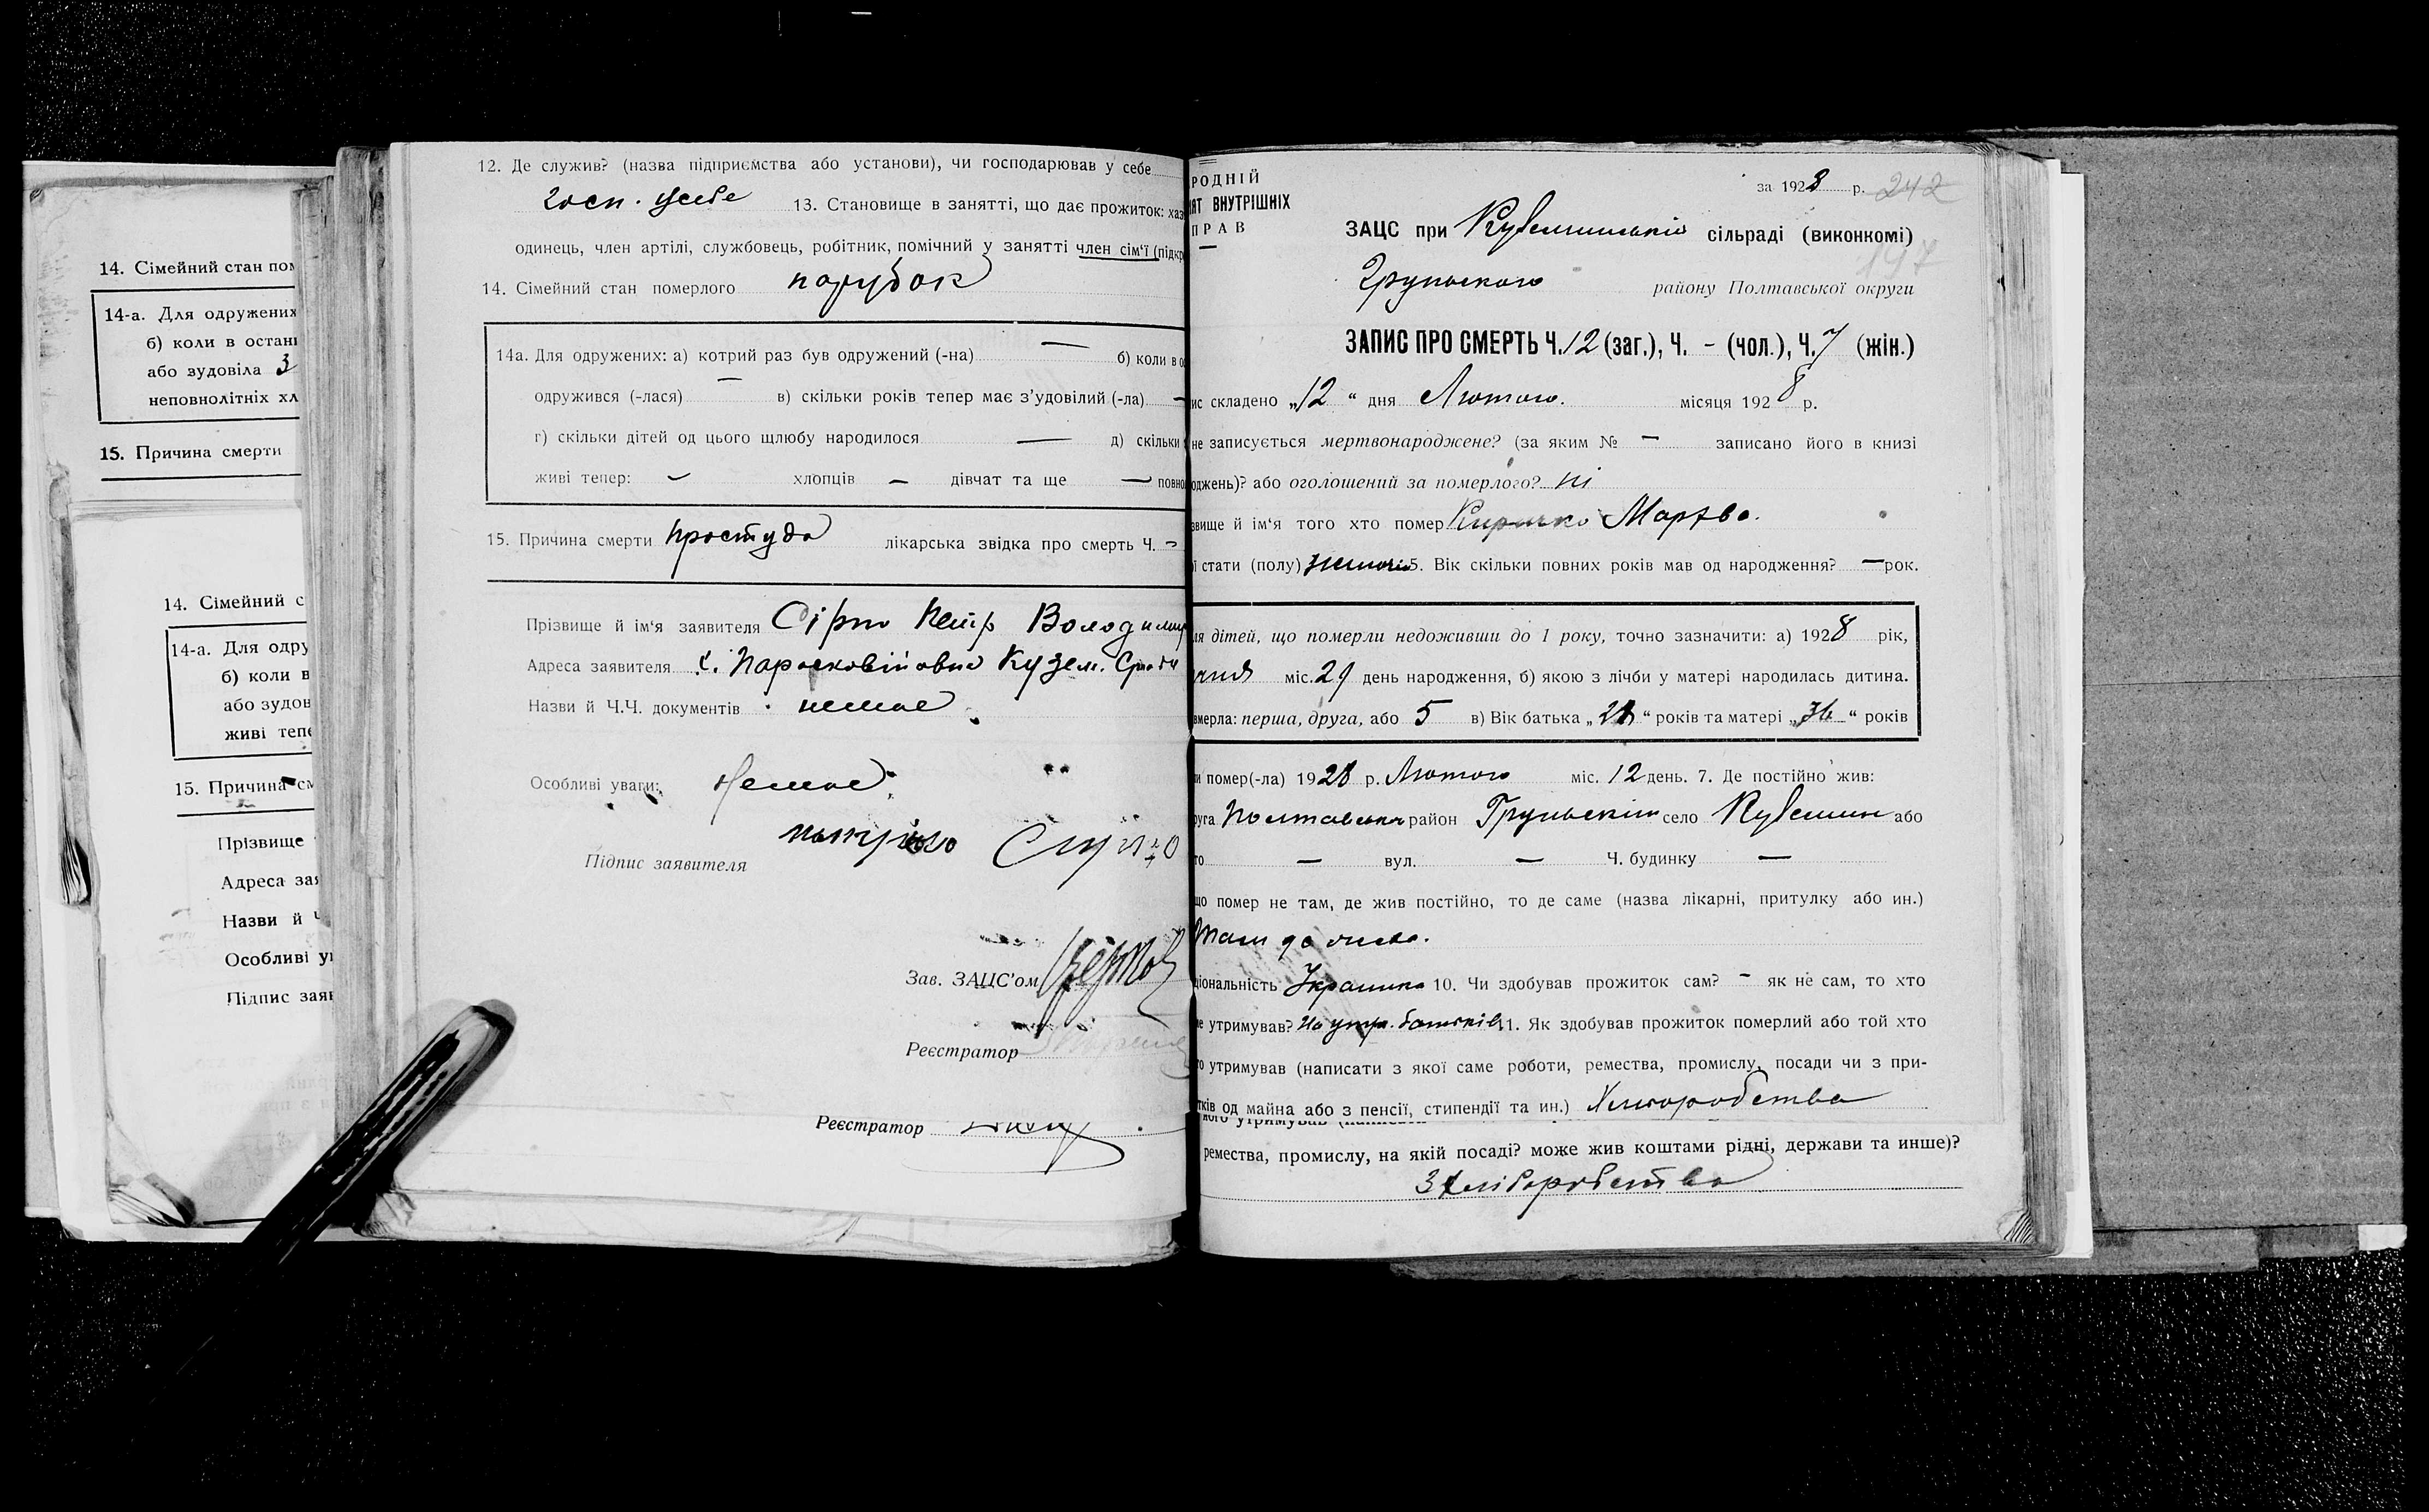 14. Сімейний стан пом
14-а. Для одружених
б) коли в остані
або зудовіла 3
неповнолітніх хл
15. Причина смерти
14. Сімейний с
14-а. Для одру
б) коли в
або зудов
живі тепе
15. Причина см
Прізвище
Адреса зая
Назви й Ч
Особливі ув
Підпис заяв
12. Де служив? (назва підприємства або установи), чи господарював у себе
госп. усебе 13. Становище в занятті, що дає прожиток: хаз
одинець, член артілі, службовець, робітник, помічний у занятті член сім'ї (підкр
14. Сімейний стан померлого парубок
14а. Для одружених: а) котрий раз був одружений (-на) — б) коли в ос
одружився (-лася) — в) скільки років тепер має з'удовілий (-ла) —
г) скільки дітей од цього шлюбу народилося — д) скільки
живі тепер: — хлопців — дівчат та ще — повно
15. Причина смерти простуда лікарська звідка про смерть Ч. –
Прізвище й ім'я заявителя Петр Володимир
Адреса заявителя Кузем.
Назви й Ч.Ч. документів немає
Особливі уваги: Немає
Підпис заявителя
Зав. ЗАЦС'ом
Реєстратор
Реєстратор
РОДНІЙ
ІЯТ ВНУТРІШНІХ
ПРАВ
за 1928 р. 242
ЗАЦС при Куземинській сільраді (виконкомі)
197
Груньского району Полтавської округи
ЗАПИС ПРО СМЕРТЬ Ч. 12 (заг.), Ч. – (чол.), Ч. 7 (жін.)
ис складено „12“ дня Лютого. місяця 1928 р.
не записується мертвонароджене? (за яким № — записано його в книзі
оджень)? або оголошений за померлого? ні
звище й ім'я того хто помер Киричко Марфа.
ї стати (полу) 5. Вік скільки повних років мав од народження? — рок.
ля дітей, що померли недоживши до 1 року, точно зазначити: а) 1928 рік,
міс. 29 день народження, б) якою з лічби у матері народилась дитина.
вмерла: перша, друга, або 5 в) Вік батька „ “ років та матері „36“ років
и помер(-ла) 1928 р. Лютого міс. 12 день. 7. Де постійно жив:
руга Полтавська район Груньский село Куземин або
то — вул. — Ч. будинку —
що помер не там, де жив постійно, то де саме (назва лікарні, притулку або ин.)
Там де жила.
ціональність Українка 10. Чи здобував прожиток сам? – як не сам, то хто
не утримував? На утр. батьків 11. Як здобував прожиток померлий або той хто
го утримував (написати з якої саме роботи, ремества, промислу, посади чи з при-
тків од майна або з пенсії, стипендії та ин.) Хліборобства
ремества, промислу, на якій посаді? може жив коштами рідні, держави та инше)?
З хліборобства